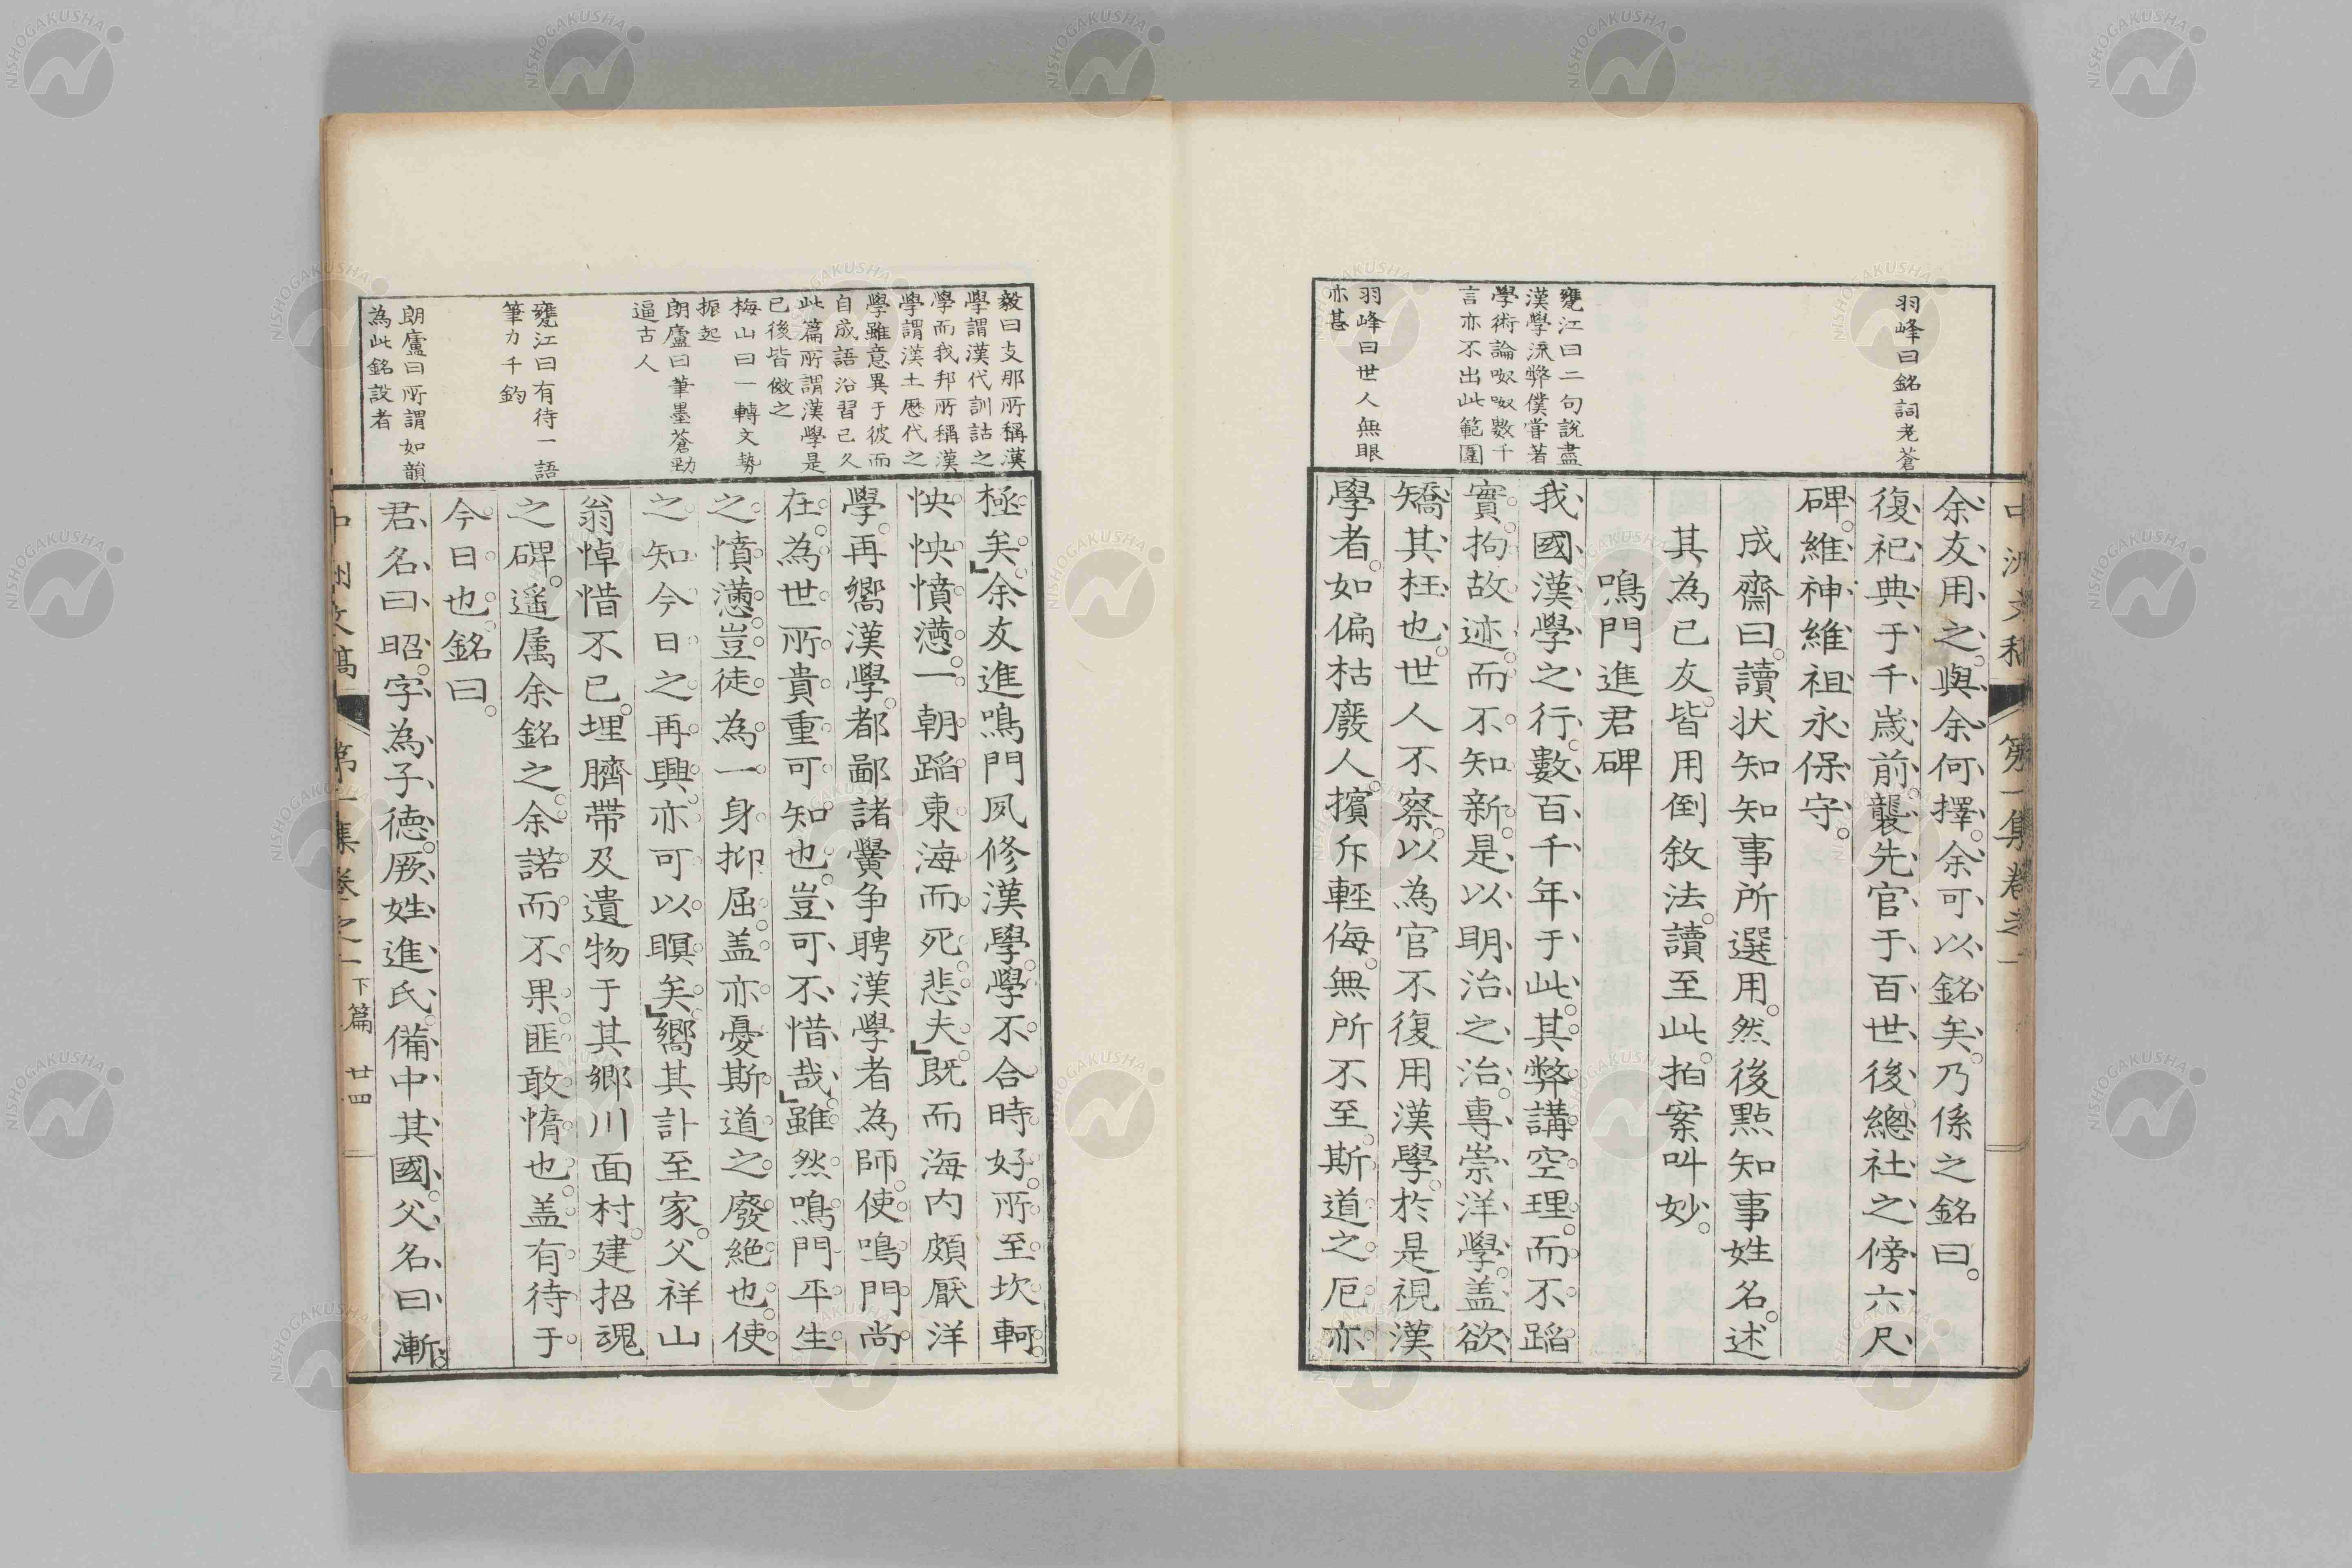 羽峰曰銘詞老蒼
甕江曰二句說盡
漢學流弊僕嘗著
學術論呶呶數千
言亦不出此範圍
羽峰曰世人無眼
亦甚
余友用之。與余何擇。余可以銘矣。乃係之銘曰。
復祀典于千歲前。襲先官于百世後。總社之傍六尺
碑。維神維祖永保守。
成齋曰。讀狀知知事所選用。然後點知事姓名。述
其為己友。皆用倒敘法。讀至此。拍案叫妙。
鳴門進君碑
我國漢學之行。數百千年于此。其弊講空理。而不蹈
實。拘故迹。而不知新。是以明治之治。專崇洋學。盖欲
矯其枉也。世人不察。以為官不復用漢學。於是視漢
學者。如偏枯廢人。擯斥輕侮。無所不至。斯道之厄亦
中洲文稿
第一集卷之一
毅曰支那所稱漢
學謂漢代訓詁之
學而我邦所稱漢
學謂漢土歷代之
學雖意異于彼而
自成語沿習已久
此篇所謂漢學是
已後皆倣之
梅山曰一轉文勢
振起
朗廬曰筆墨蒼勁
逼古人
甕江曰有待一語
筆力千鈞
朗廬曰所謂如韻
為此銘設者
極矣。」余友進鳴門夙修漢學。學不合時好。所至坎軻。
怏怏憤懣。一朝蹈東海而死。悲夫。」既而海内頗厭洋
學。再嚮漢學。都鄙諸黌争聘漢學者為師。使鳴門尚
在。為世所貴重可知也。豈可不惜哉。」雖然鳴門平生
之憤懣。豈徒為一身抑屈。盖亦憂斯道之廢絶也。使
之知今日之再興。亦可以瞑矣。」嚮其訃至家。父祥山
翁悼惜不已。埋臍帶及遺物于其鄉川面村。建招魂
之碑。遥属余銘之。余諾而不果。匪敢惰也。盖有待于
今日也。銘曰。
君名曰昭。字為子德。厥姓進氏。備中其國。父名曰漸。
中洲文稿
第一集卷之一
下篇
廿四